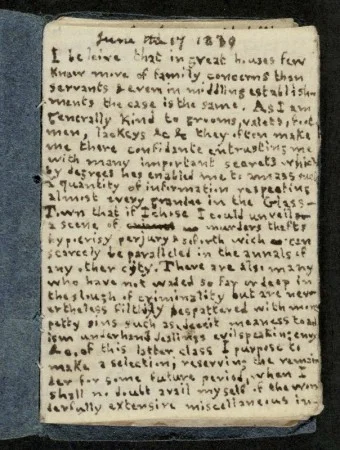 June the 17 1839
I beleive that in great houses few
know more of family concerns than
servants & even in middling establish
ments the case is the same. As I am
generally kind to grooms, valets, foot
men, lackeys &c &c they often make
me there confidante entrusting me
with many important secrets which
by degrees has enabled me to amass such
a quantity of information respecting
almost every grandee in the Glass-
Town that if I chose I could unveil
a scene of murders thefts
hypocrisy perjury & so forth wich can
scarcely be paralleled in the annals of
any other city. There are also many
who have not waded so far or deep in
the slough of criminality but are nev-
ertheless filthily bespattered with more
petty sins such as deceit meaness toad
ism underhand dealings evil speaking envy
&c. of this latter class I purpose to
make a selection, reserving the remain
der for some future period, when I
shall no doubt avail myself of the won
derfully extensive miscellaneous in-